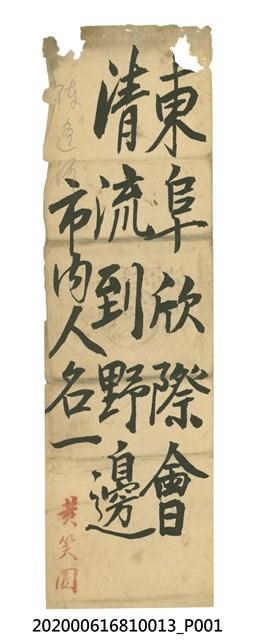 東阜欣際會
清流到野邊
市內人名一
黃笑園
陳逢源
202000616810013_P001